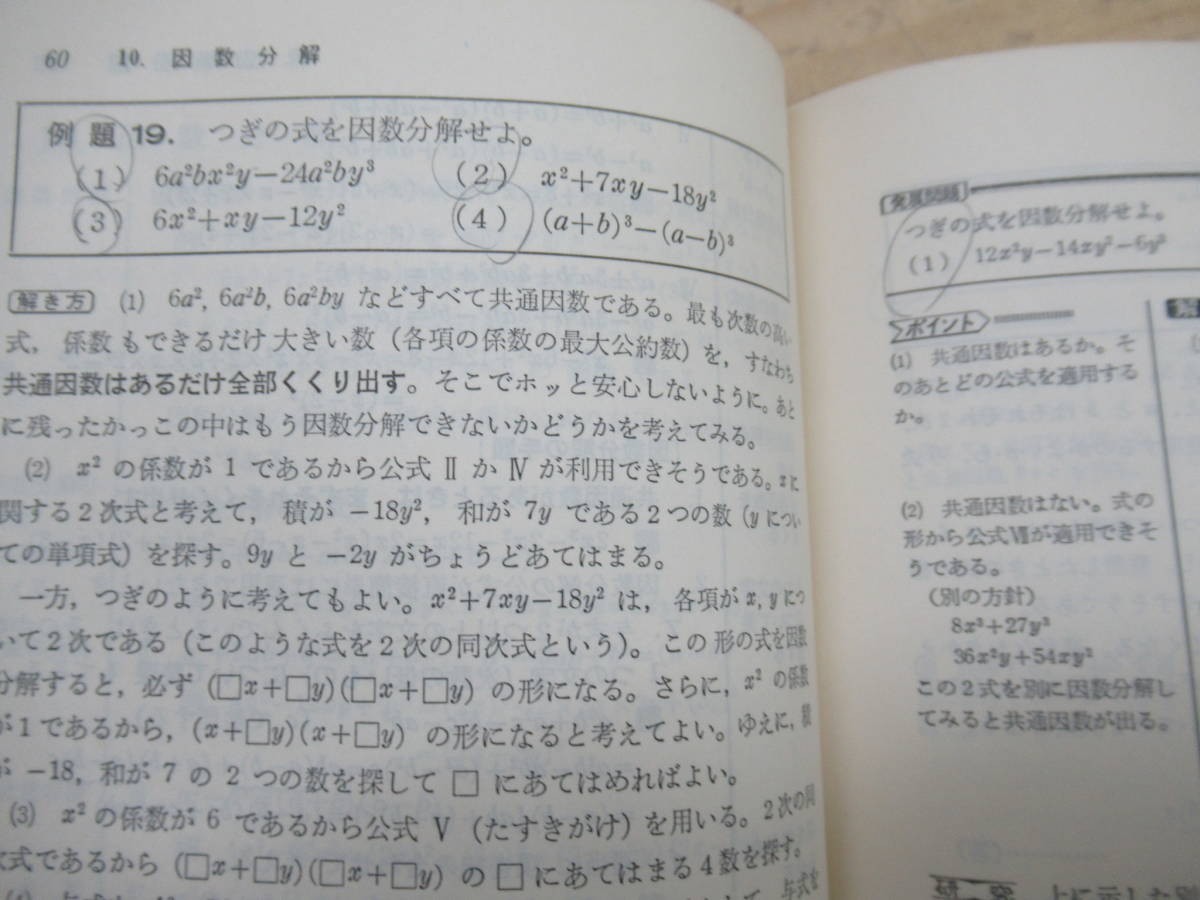 60 10. 因数分解
例題 19. つぎの式を因数分解せよ。
(1) 6a²bx²y−24a²by³ (2) x²+7xy−18y²
(3) 6x²+xy−12y² (4) (a+b)³−(a−b)³
解き方 (1) 6a², 6a²b, 6a²by などすべて共通因数である。最も次数の高い
式, 係数もできるだけ大きい数 (各項の係数の最大公約数) を, すなわち
共通因数はあるだけ全部くくり出す。そこでホッと安心しないように。あと
に残ったかっこの中はもう因数分解できないかどうかを考えてみる。
(2) x² の係数が 1 であるから公式 Ⅱ か Ⅳ が利用できそうである。x に
関する2次式と考えて, 積が −18y², 和が 7y である2つの数 (y につい
ての単項式) を探す。9y と −2y がちょうどあてはまる。
一方, つぎのように考えてもよい。x²+7xy−18y² は, 各項が x, y につ
いて2次である (このような式を2次の同次式という)。この形の式を因数
分解すると, 必ず (□x+□y)(□x+□y) の形になる。さらに, x² の係数
が1であるから, (x+□y)(x+□y) の形になると考えてよい。ゆえに, 積
が −18, 和が 7 の 2 つの数を探して □ にあてはめればよい。
(3) x² の係数が 6 であるから公式 Ⅴ (たすきがけ) を用いる。2次の同
次式であるから (□x+□y)(□x+□y) の □ にあてはまる4数を探す。
発展問題
つぎの式を因数分解せよ。
(1) 12x²y−14xy²−6y³
ポイント
(1) 共通因数はあるか。そ
のあとどの公式を適用する
か。
(2) 共通因数はない。式の
形から公式Ⅶが適用できそ
うである。
(別の方針)
8x³+27y³
36x²y+54xy²
この2式を別に因数分解し
てみると共通因数が出る。
研究 上に示した別